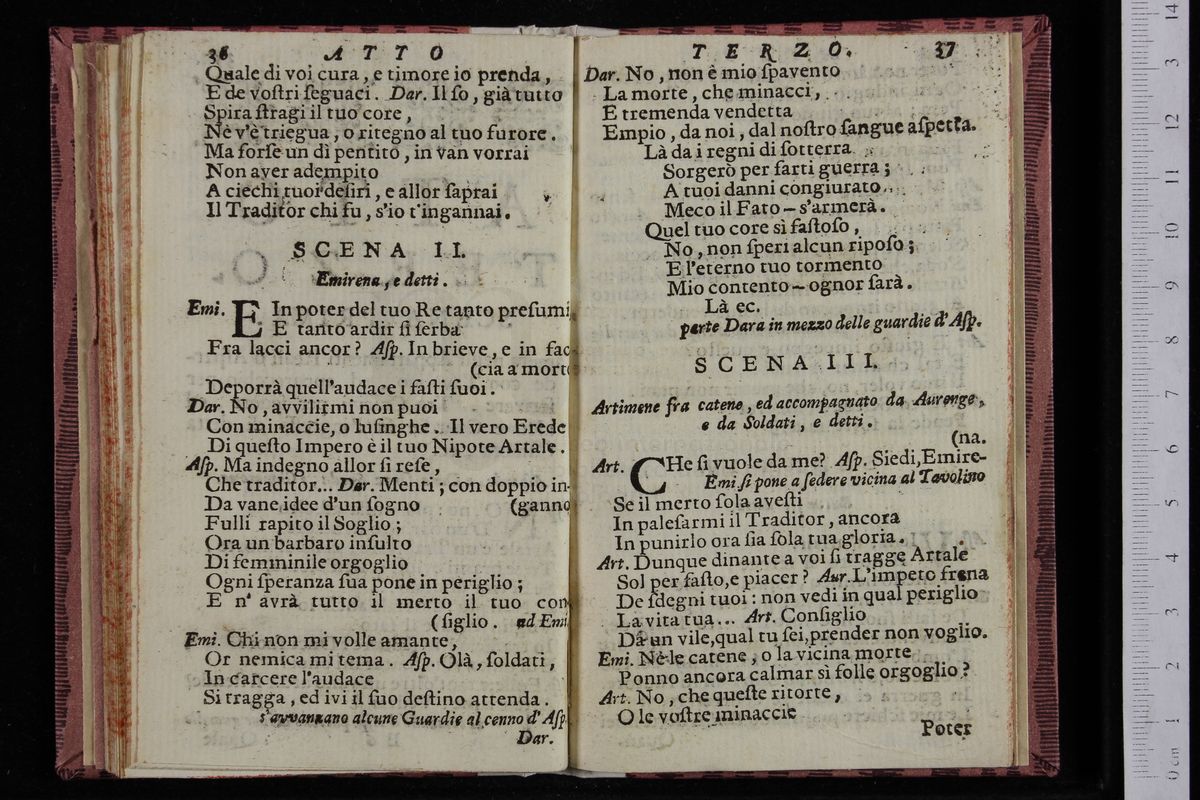 36 ATTO
Quale di voi cura, e timore io prenda,
E de vostri seguaci. Dar. Il so, già tutto
Spira stragi il tuo core,
Nè v'è triegua, o ritegno al tuo furore.
Ma forse un dì pentito, in van vorrai
Non aver adempito
A ciechi tuoi desiri, e allor saprai
Il Traditor chi fu, s'io t'ingannai.
SCENA II.
Emirena, e detti.
Emi. E In poter del tuo Re tanto presumi
E tanto ardir si serba
Fra lacci ancor? Asp. In brieve, e in fac
(cia a morte
Deporrà quell'audace i fasti suoi.
Dar. No, avvilirmi non puoi
Con minaccie, o lusinghe. Il vero Erede
Di questo Impero è il tuo Nipote Artale.
Asp. Ma indegno allor si rese,
Che traditor... Dar. Menti; con doppio in-
Da vane idee d'un sogno (ganno
Fulli rapito il Soglio;
Ora un barbaro insulto
Di femminile orgoglio
Ogni speranza sua pone in periglio;
E n' avrà tutto il merto il tuo con
(siglio. ad Emi
Emi. Chi non mi volle amante,
Or nemica mi tema. Asp. Olà, soldati,
In carcere l'audace
Si tragga, ed ivi il suo destino attenda.
s'avvanzano alcune Guardie al cenno d'Asp.
Dar.
TERZO. 37
Dar. No, non è mio spavento
La morte, che minacci,
E tremenda vendetta
Empio, da noi, dal nostro sangue aspetta.
Là da i regni di sotterra
Sorgerò per farti guerra;
A tuoi danni congiurato
Meco il Fato – s'armerà.
Quel tuo core sì fastoso,
No, non speri alcun riposo;
E l'eterno tuo tormento
Mio contento – ognor sarà.
Là ec.
parte Dara in mezzo delle guardie d'Asp.
SCENA III.
Artimene fra catene, ed accompagnato da Aurenge,
e da Soldati, e detti.
(na.
Art. CHe si vuole da me? Asp. Siedi, Emire-
Emi. si pone a sedere vicina al Tavolino
Se il merto sola avesti
In palesarmi il Traditor, ancora
In punirlo ora sia sola tua gloria.
Art. Dunque dinante a voi si tragge Artale
Sol per fasto, e piacer? Aur. L'impeto frena
De sdegni tuoi: non vedi in qual periglio
La vita tua... Art. Consiglio
Da un vile, qual tu sei, prender non voglio.
Emi. Nè le catene, o la vicina morte
Ponno ancora calmar sì folle orgoglio?
Art. No, che queste ritorte,
O le vostre minaccie
Poter